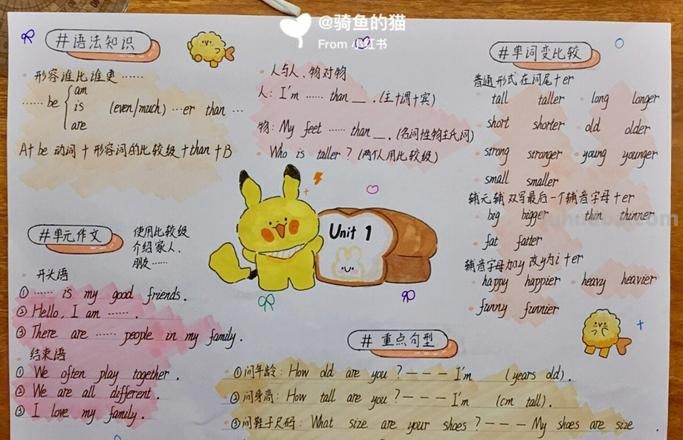 @骑鱼的猫
From 小红书
#语法知识
形容谁比谁更……
…… be { am
is
are
(even/much) …er than …
A+be 动词+形容词的比较级+than+B
人与人、物对物
人: I'm …… than __ .(主+谓+宾)
物: My feet …… than __ .(名词性物主代词)
Who is taller ? (两人用比较级)
#单词变比较
普通形式在词尾+er
tall taller long longer
short shorter old older
strong stronger young younger
small smaller
辅元辅 双写最后一个辅音字母+er
big bigger thin thinner
fat fatter
辅音字母加y 改y为i+er
happy happier heavy heavier
funny funnier
Unit 1
#单元作文
使用比较级
介绍家人、
朋友……
开头语
① …… is my good friends.
② Hello, I am …….
③ There are …… people in my family.
结束语
① We often play together.
② We are all different.
③ I love my family.
# 重点句型
①问年龄: How old are you ? --- I'm (years old).
②问身高: How tall are you ? --- I'm (cm tall).
③问鞋子尺码: What size are your shoes ? --- My shoes are size